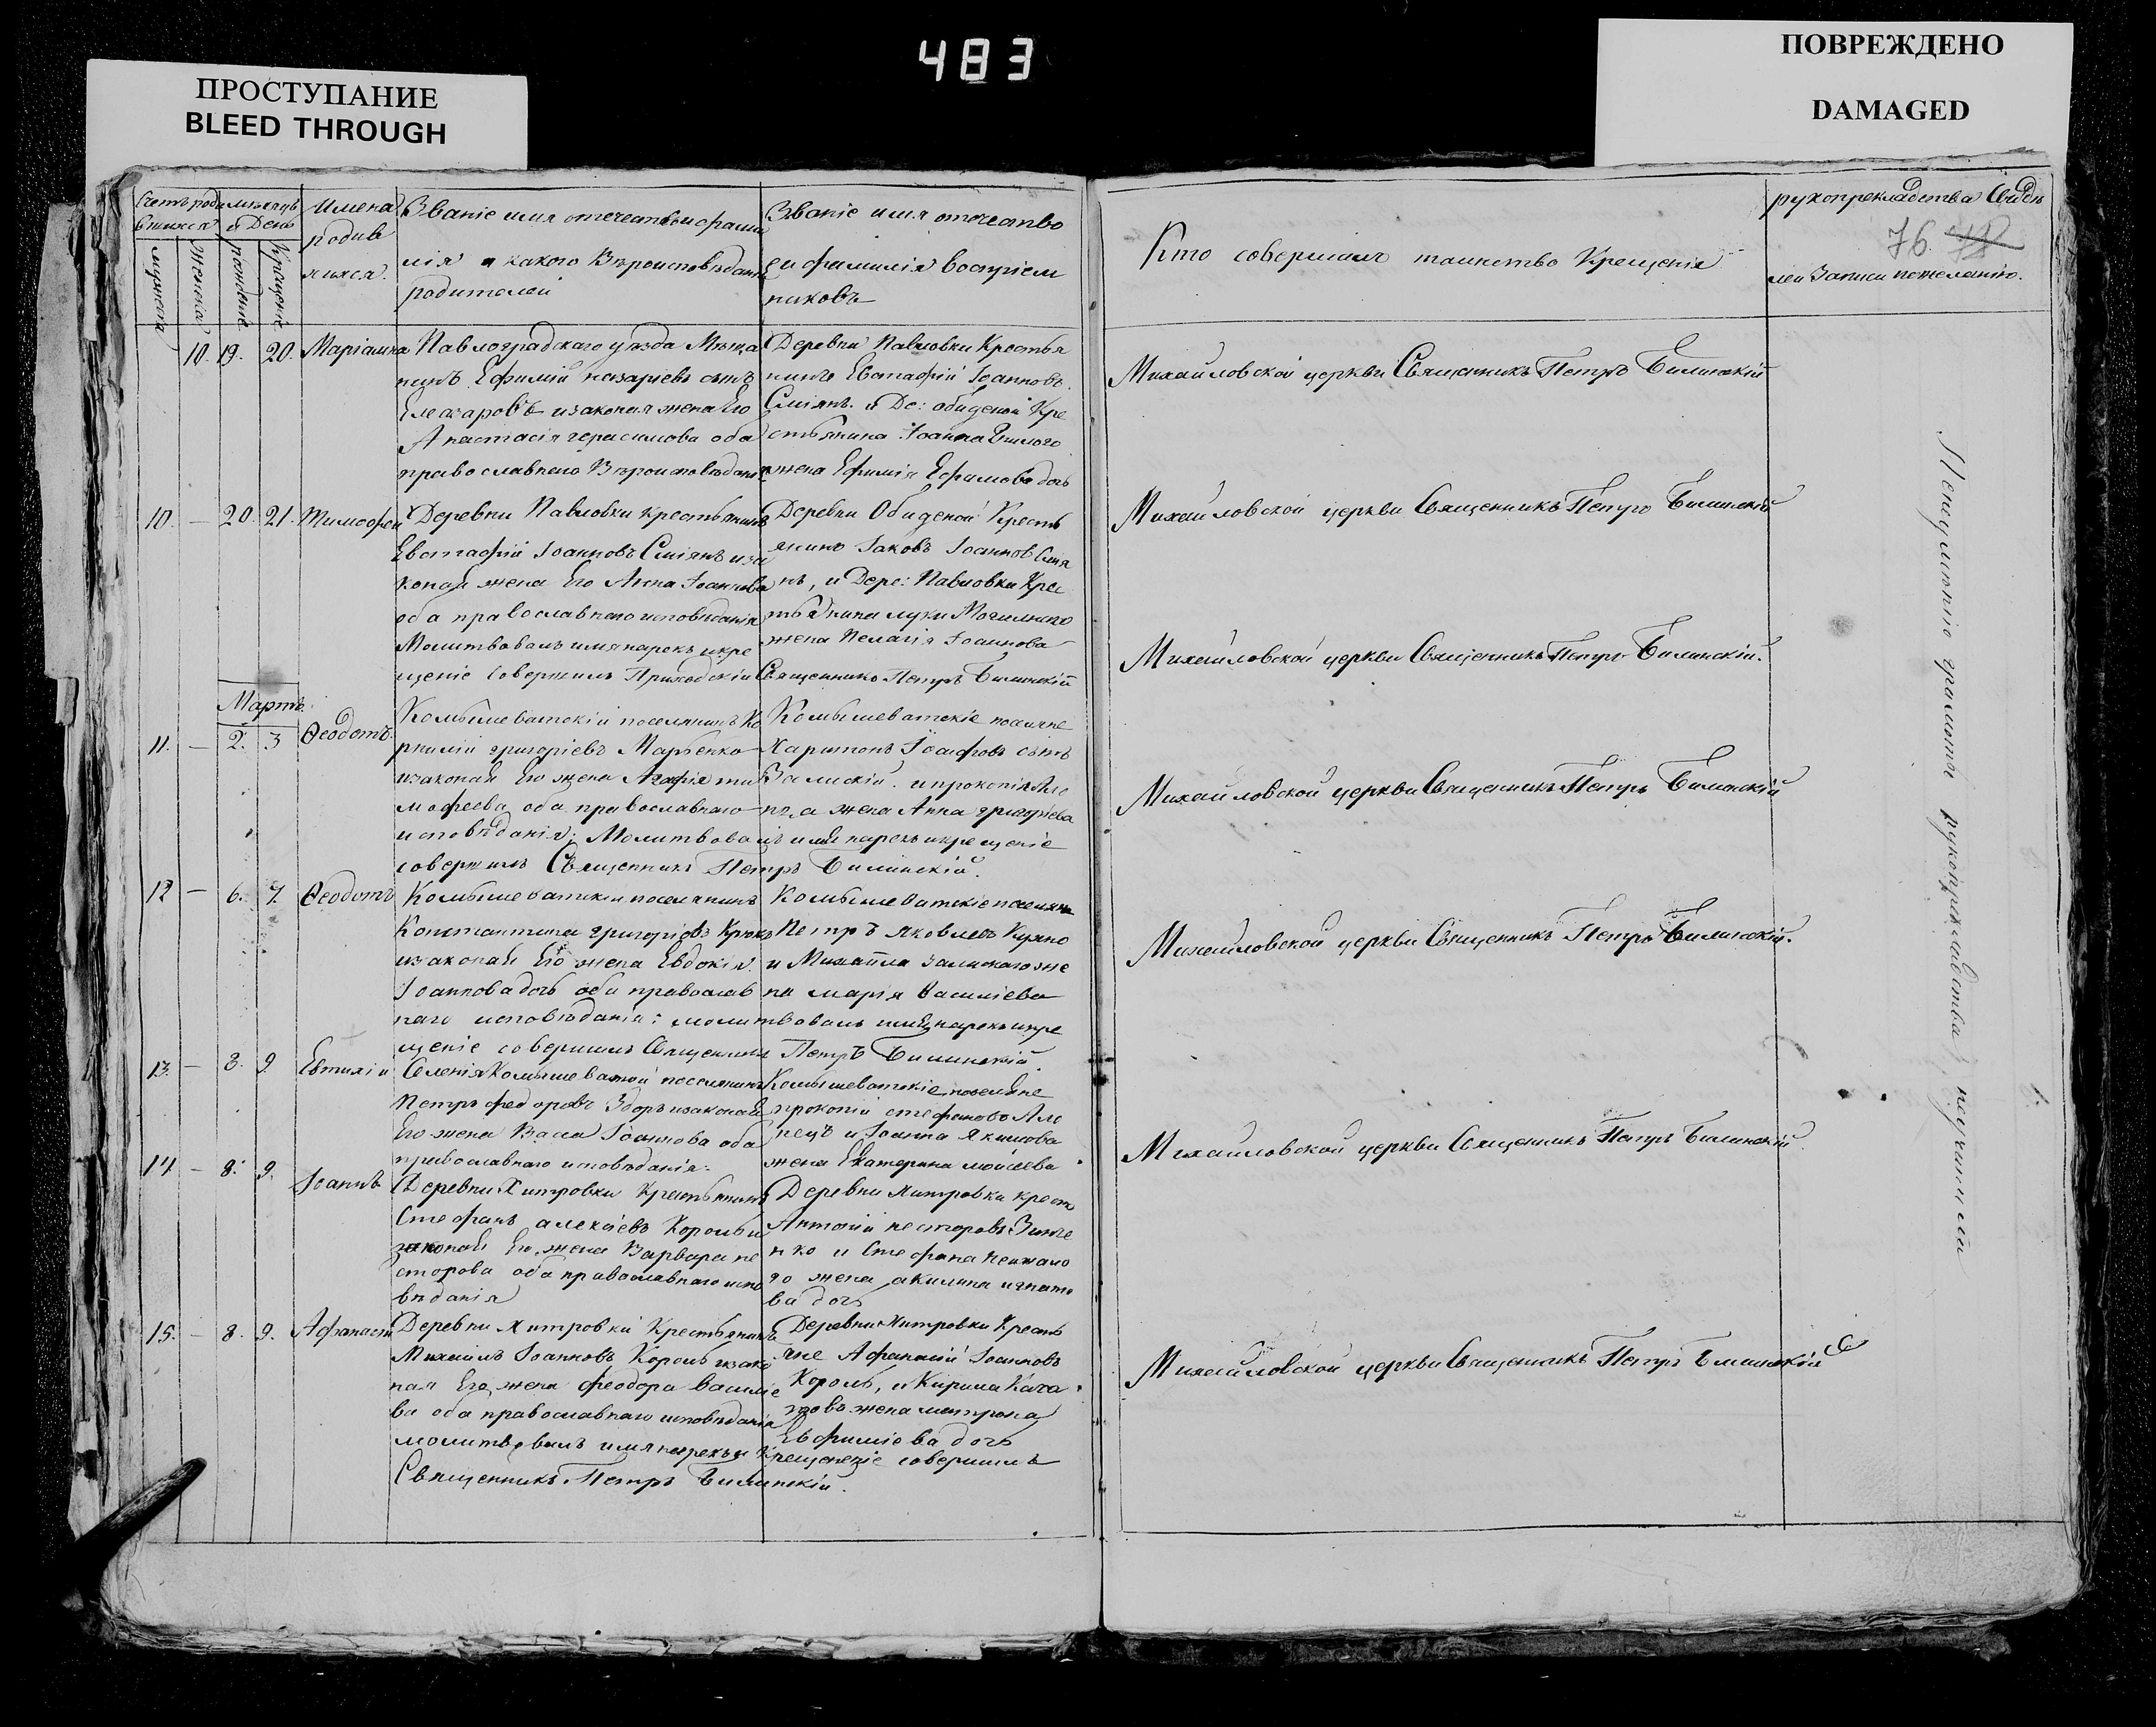 483
ПРОСТУПАНИЕ
BLEED THROUGH
ПОВРЕЖДЕНО
DAMAGED
Счетъ роди мѣсяцъ
вшихся и День
мужеска
женска
рожденіе
Крещеніе
Имена
родив
шихся.
Званіе имя отечество и фами
лія и какого Вѣроисповѣданія
родителей
Званіе имя отечество
и фамилія воспріем
никовъ
10. 19. 20. Маріамна
Павлоградскаго уѣзда Мѣща
нинъ Ефимій Назаріевъ сынъ
Елеазаровъ изаконая жена Его
Анастасія герасимова оба
православнаго Вѣроисповѣданія
Деревни Павловки Крестья
нинъ Евстафій Іоанновъ
Сміянъ. и Де: обиденой Кре
стьянина Іоанна
жена Ефимія Ефимова дочь
10. — 20. 21. Тимофей
Деревни Павловки крестьянинъ
Евстафій Іоанновъ Сміянъ иза
коная жена Его Анна Іоаннова
оба православнаго исповѣданія
Молитвовалъ имя нарекъ икре
щеніе совершилъ Приходскій Священникъ Петръ Билинскій
Деревни Обиденой Кресть
янинъ Іаковъ Іоанновъ Смія
нъ, и Дере: Павловки Кре
стьянина луки
жена Пелагія Іоаннова
Мартъ.
11. — 2. 3 Ѳеодотъ.
Комышеватскій поселянинъ Ко
рнилій григоріевъ Марченко
изаконая Его жена Агафія ти
мофеева, оба православнаго
исповѣданія; Молитвовалъ имя нарекъ икрещеніе
совершилъ Священникъ Петръ Билинскій.
Комышеватскіе поселяне
Харитонъ Іосифовъ сынъ
Залискій. ипрокопія Але
пца жена Анна григоріева
12 — 6. 7. Ѳеодотъ
Комышеватскій поселянинъ
Константинъ григоріевъ Крюкъ
изаконая Его жена Евдокія
Іоаннова дочь оба православ
наго исповѣданія: молитвовалъ имя нарекъ икре
щеніе совершилъ Священникъ Петръ Билинскій.
Комышеватскіе поселяне
Петръ Яковлевъ
и Михаила Залискаго же
на марія Василіева
13. — 8. 9 Евтихій
Селенія Комышеватой поселянинъ
Петръ федоровъ Здоръ изаконая
Его жена Васса Іоаннова оба
православнаго исповѣданія.
Комышеватскіе поселяне
прокопій стефановъ Але
пецъ и Іоанна Якимова
жена Екатерина моисеева
14. — 8. 9. Іоаннъ
Деревни Хитровки Крестьянинъ
Стефанъ алексіевъ Король и
законая Его жена Варвара не
сторова оба православнаго испо
вѣданія
Деревни хитровки крест
Антоній несторовъ Зинче
нко и Стефана
го жена акилина игнато
ва дочь
15. — 8. 9. Афанасій
Деревни хитровки Крестьянинъ
Михаилъ Іоанновъ Король изако
ная Его жена феодора василіе
ва оба православнаго исповѣданія
молитвовалъ имя нарекъ и Крещеніе совершилъ
Священникъ Петръ Билинскій.
Деревни хитровки Кресть
яне Афанасій Іоанновъ
Король, и Кирила
жена матрона
Евфиміева дочь
Кто совершалъ таинство Крещенія
рукоприкладства Свидѣ
76.
лей Записи по желанію.
Михайловской церкви Священникъ Петръ Билинскій
Михайловской церкви Священникъ Петръ Билинскій
Михайловской церкви Священникъ Петръ Билинскій.
Михайловской церкви Священникъ Петръ Билинскій
Михайловской церкви Священникъ Петръ Билинскій.
Михайловской церкви Священникъ Петръ Билинскій.
Михайловской церкви Священникъ Петръ Билинскій
грамоты рукоприкладства